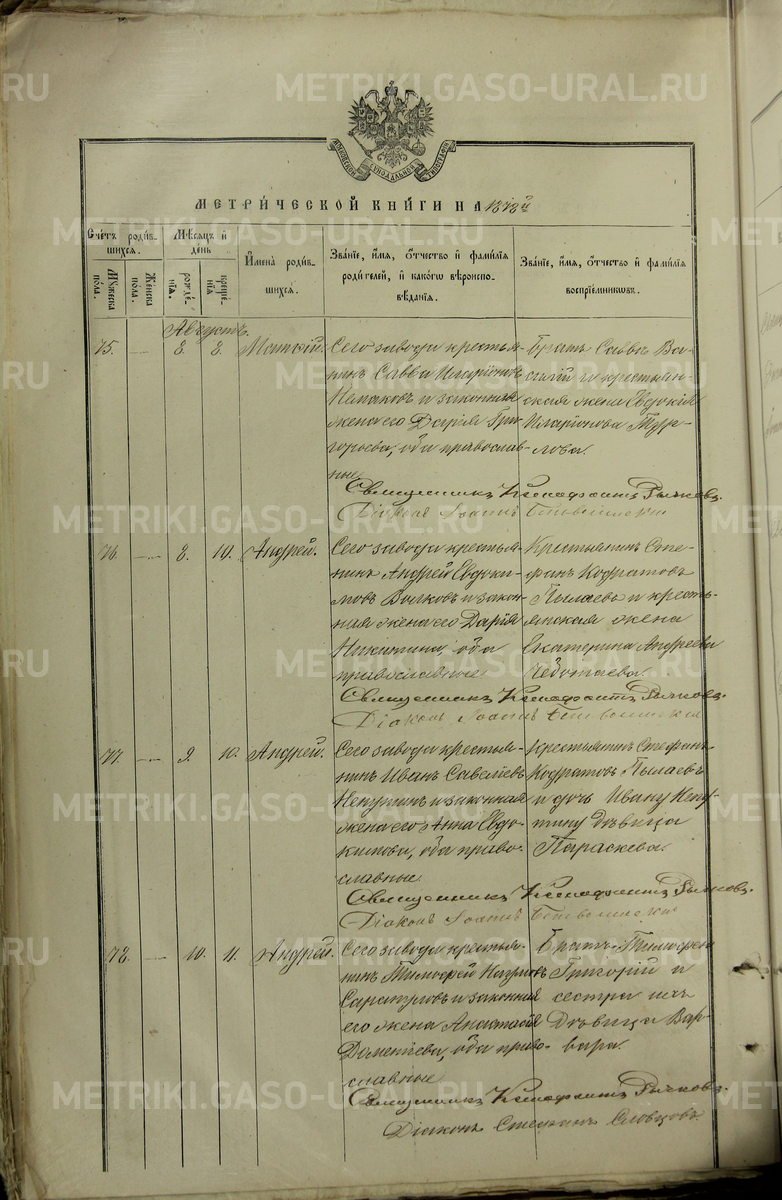 METRIKI.GASO-URAL.RU
МЕТРИ́ЧЕСКОЙ КНИ́ГИ НА 1878й
Сче́тъ роди́вшихся.
Мѣ́сяцъ и день
Имена̀ роди́вшихся.
Зва́нїе, и́мя, о́тчество и фами́лїя роди́телей, и како́гѡ вѣроисповѣ́данїя.
Зва́нїе, и́мя, о́тчество и фами́лїя воспрїе́мниковъ.
Мꙋ́жеска по́ла.
Же́нска по́ла.
рожде́нїя.
креще́нїя
Августъ.
75. — 8. 8. Матѳій.
Сего завода крестья-
нинъ Савва Иларіоновъ
и законная
жена его Дарія Гри-
горьева, оба православ-
ные
Братъ Саввы Ва-
силій и крестьян-
ская жена Евдокія
Иларіонова
Священникъ Ксенофонтъ Рычковъ.
Діаконъ Іоаннъ
76. — 8. 10. Андрей.
Сего завода крестья-
нинъ Андрей Евдоки-
мовъ Волковъ и закон-
ная жена его Дарія
Никитина, оба
православные
Крестьянинъ Сте-
фанъ Кодратовъ
Пылаевъ и кресть-
янская жена
Екатерина Андреева
Чеботаева.
Священникъ Ксенофонтъ Рычковъ.
Діаконъ Іоаннъ
77. — 9. 10. Андрей.
Сего завода крестья-
нинъ Иванъ Савельевъ
и законная
жена его Анна Евдо-
кимова, оба право-
славные
Крестьянинъ Стефанъ
Кодратовъ Пылаевъ
и дочь Ивану
дѣвица
Параскева.
Священникъ Ксенофонтъ Рычковъ.
Діаконъ Іоаннъ
78. — 10. 11. Андрей.
Сего завода крестья-
нинъ Тимофей
Сарапуловъ и законная
его жена Анастасія
Дометіева, оба право-
славные
Братъ Тимофея
Григорій и
сестра ихъ
дѣвица Вар-
вара.
Священникъ Ксенофонтъ Рычковъ.
Діаконъ Стефанъ Словцовъ.